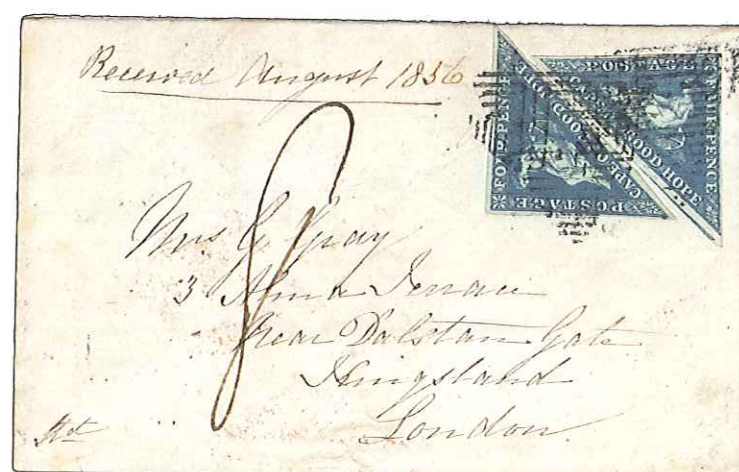 Received August 1856
POSTAGE
FOUR PENCE
CAPE OF GOOD HOPE
FOUR PENCE
CAPE OF GOOD HOPE
POSTAGE
8
Mrs G. Gray
3 Alma Terrace
Near Dalstan Gate
Kingsland
London.